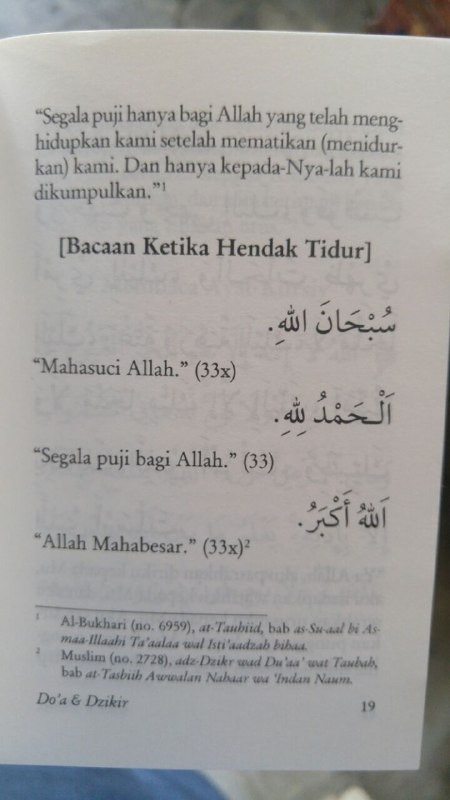 “Segala puji hanya bagi Allah yang telah meng-
hidupkan kami setelah mematikan (menidur-
kan) kami. Dan hanya kepada-Nya-lah kami
dikumpulkan.”¹
[Bacaan Ketika Hendak Tidur]
سُبْحَانَ اللهِ.
“Mahasuci Allah.” (33x)
اَلْحَمْدُ لِلهِ.
“Segala puji bagi Allah.” (33)
اَللهُ أَكْبَرُ.
“Allah Mahabesar.” (33x)²
¹ Al-Bukhari (no. 6959), at-Tauhiid, bab as-Su-aal bi As-
maa-illaahi Ta’aalaa wal Isti’aadzah bihaa.
² Muslim (no. 2728), adz-Dzikr wad Du’aa’ wat Taubah,
bab at-Tasbiih Awwalan Nahaar wa ‘Indan Naum.
Do’a & Dzikir 19